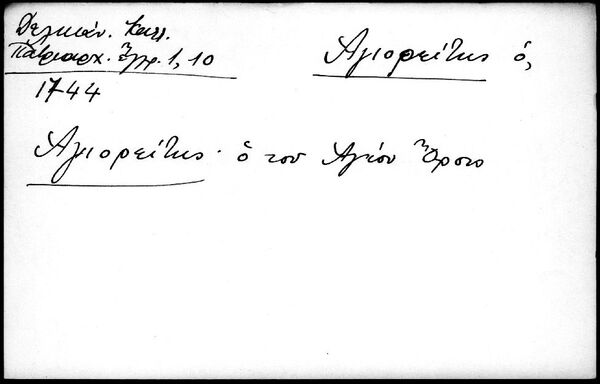 Δελικάν. Καλλ.
Πατριαρχ. Ἔγγρ. 1, 10
1744
Ἁγιορείτης ὁ,
Ἁγιορείτης· ὁ τοῦ Ἁγίου Ὄρους